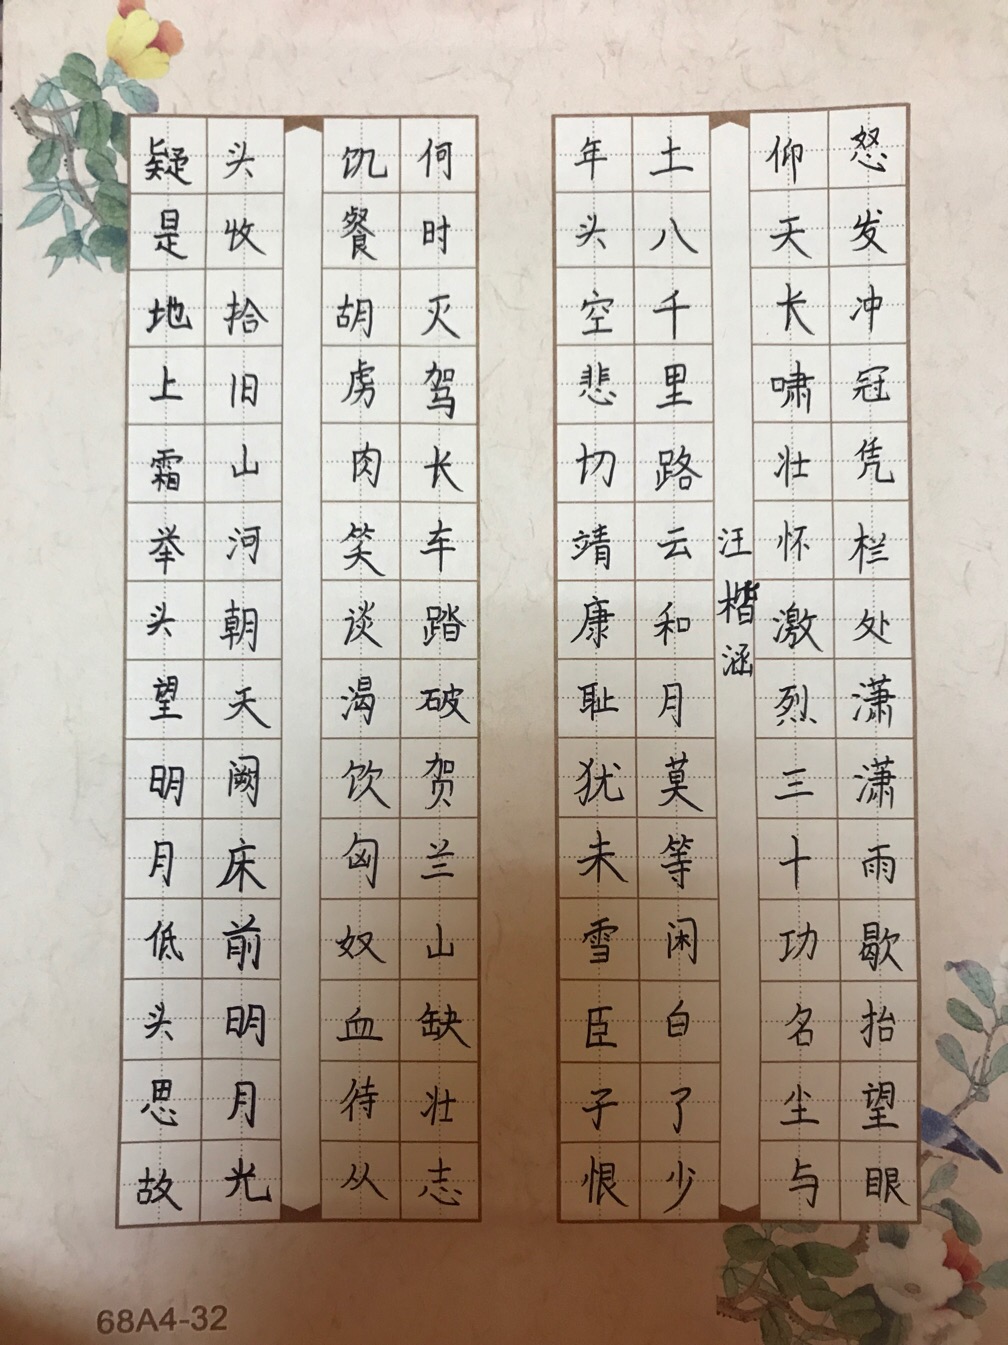 怒发冲冠凭栏处潇潇雨歇抬望眼
仰天长啸壮怀激烈三十功名尘与
汪楷涵
土八千里路云和月莫等闲白了少
年头空悲切靖康耻犹未雪臣子恨
何时灭驾长车踏破贺兰山缺壮志
饥餐胡虏肉笑谈渴饮匈奴血待从
头收拾旧山河朝天阙床前明月光
疑是地上霜举头望明月低头思故
68A4-32